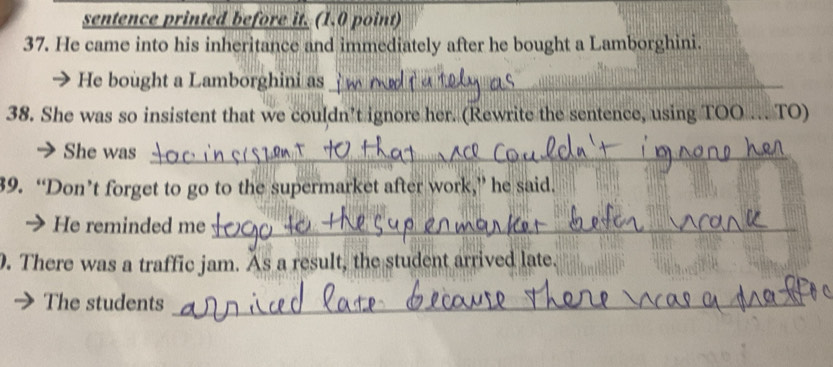 sentence printed before it. (1.0 point)
37. He came into his inheritance and immediately after he bought a Lamborghini.
→ He bought a Lamborghini as immediately as
38. She was so insistent that we couldn't ignore her. (Rewrite the sentence, using TOO ... TO)
→ She was too insistent to that we couldn't ignore her
39. "Don't forget to go to the supermarket after work," he said.
→ He reminded me to go to the supermarket
). There was a traffic jam. As a result, the student arrived late.
→ The students arrived late because there was a traffic